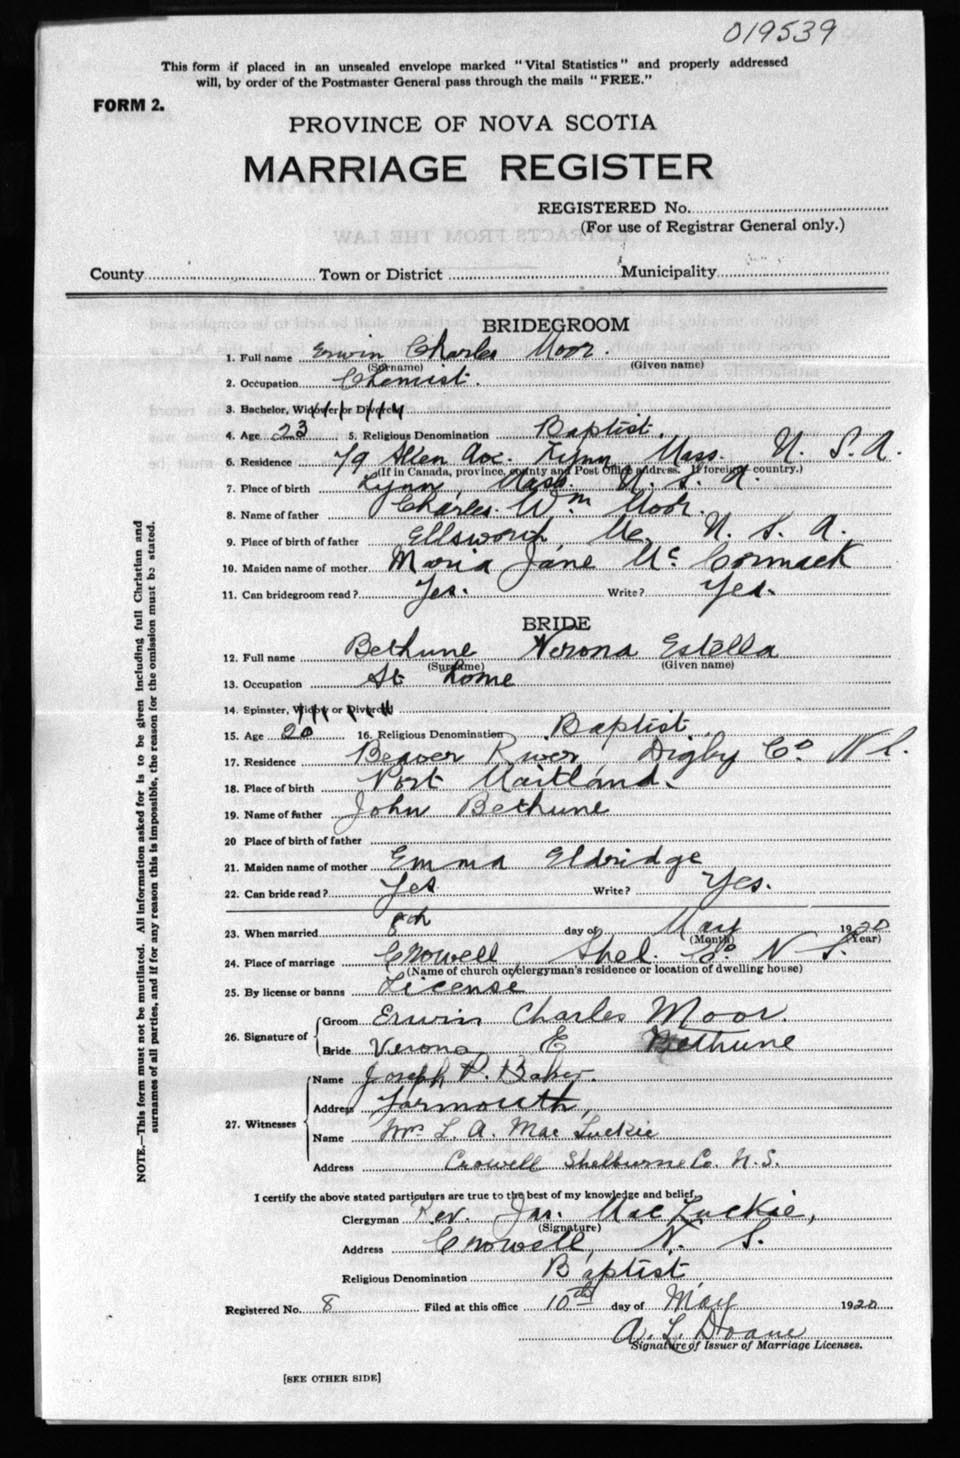 019539
This form if placed in an unsealed envelope marked "Vital Statistics" and properly addressed
will, by order of the Postmaster General pass through the mails "FREE."
FORM 2.
PROVINCE OF NOVA SCOTIA
MARRIAGE REGISTER
REGISTERED No.
(For use of Registrar General only.)
County Town or District Municipality
BRIDEGROOM
1. Full name Erwin Charles Moor.
(Surname) (Given name)
2. Occupation Chemist.
3. Bachelor, Widower or Divorced
4. Age 23 5. Religious Denomination Baptist.
6. Residence 79 Allen Ave. Lynn, Mass. U. S. A.
(If in Canada, province, county and Post Office address. If foreign country.)
7. Place of birth Lynn, Mass. U. S. A.
8. Name of father Charles. Wm Moor.
9. Place of birth of father Ellsworth, Me. U. S. A.
10. Maiden name of mother Maria Jane Mc Cormack
11. Can bridegroom read? Yes. Write? Yes.
BRIDE
12. Full name Bethune Verona Estella
(Surname) (Given name)
13. Occupation At home
14. Spinster, Widow or Divorced
15. Age 20 16. Religious Denomination Baptist.
17. Residence Beaver River, Digby Co. N S.
18. Place of birth Port Maitland.
19. Name of father John Bethune
20 Place of birth of father
21. Maiden name of mother Emma Eldridge
22. Can bride read? Yes Write? Yes.
23. When married 8th day of May 1920
(Month) (Year)
24. Place of marriage Crowell, Shel. Co. N S.
(Name of church or clergyman's residence or location of dwelling house)
25. By license or banns License
26. Signature of Groom Erwin Charles Moor.
Bride Verona E Bethune
27. Witnesses Name Joseph P. Baker.
Address Yarmouth,
Name Mrs L. A. Mac Luckie
Address Crowell Shelburne Co. N.S.
I certify the above stated particulars are true to the best of my knowledge and belief.
Clergyman Rev. Jas. MacLuckie,
(Signature)
Address Crowell, N. S.
Religious Denomination Baptist
Registered No. 8 Filed at this office 10th day of May 1920
A. L. Doane
Signature of Issuer of Marriage Licenses.
[SEE OTHER SIDE]
NOTE.—This form must not be mutilated. All information asked for is to be given including full Christian and
surnames of all parties, and if for any reason this is impossible, the reason for the omission must be stated.